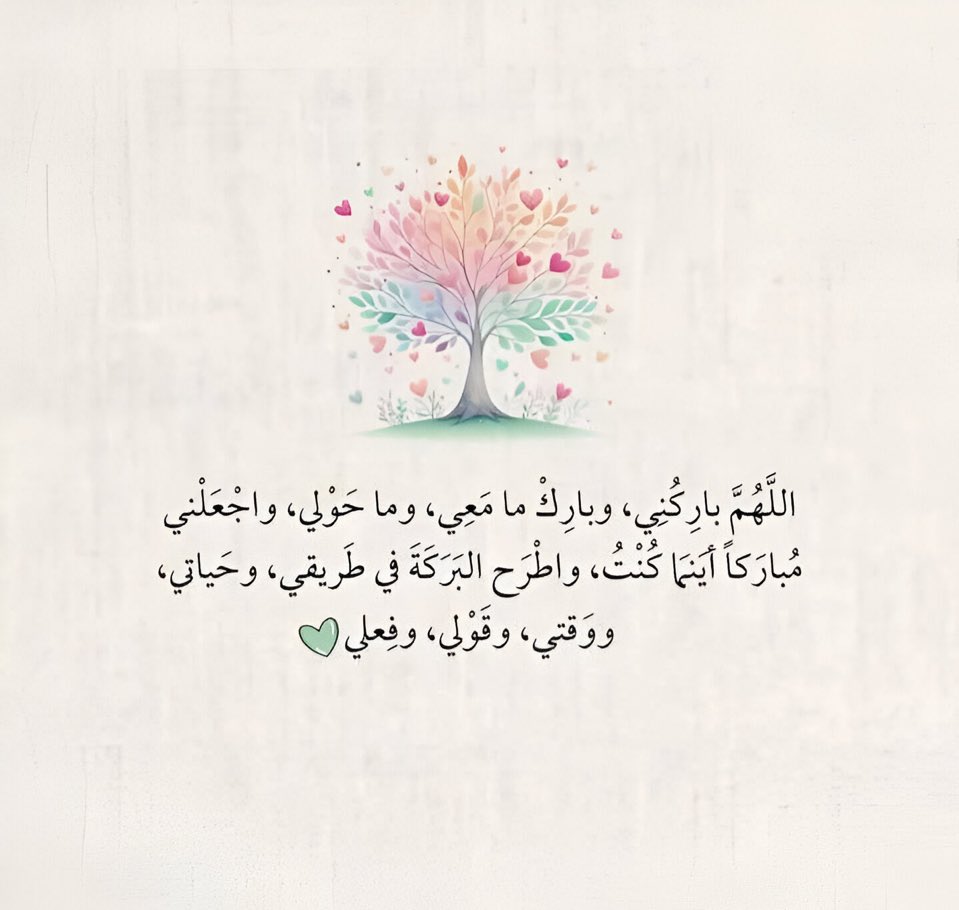 اللَّهُمَّ بارِكُنِي، وبارِكْ ما مَعِي، وما حَوْلي، واجْعَلْني
مُبارَكاً أيَنَمَا كُنْتُ، واطْرَح البَرَكَةَ في طَريقي، وحَياتي،
ووَقتي، وقَوْلي، وفِعلي